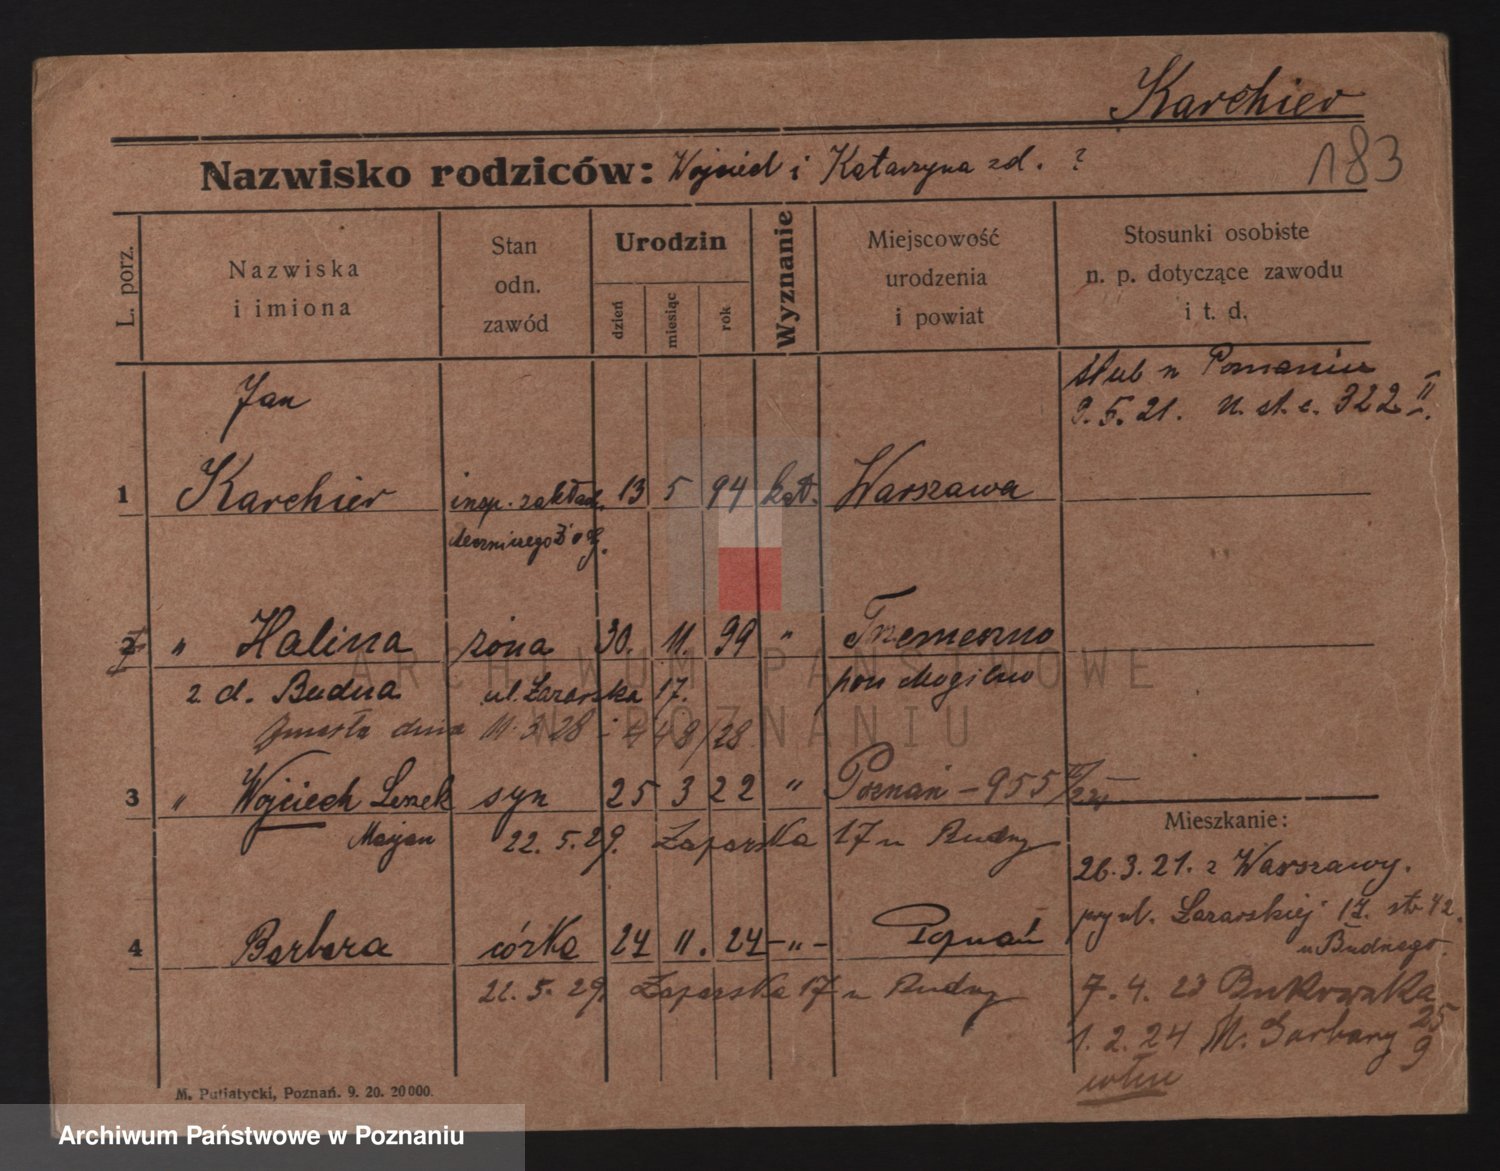 Karchier
183
Nazwisko rodziców: Wojciech i Katarzyna zd. ?
L. porz.
Nazwiska
i imiona
Stan
odn.
zawód
Urodzin
dzień
miesiąc
rok
Wyznanie
Miejscowość
urodzenia
i powiat
Stosunki osobiste
n. p. dotyczące zawodu
i t. d.
ślub w Poznaniu
9.5.21. U. st. c. 322 II.
Jan
1 Karchier insp. zakład. 13 5 94 kat. Warszawa
leczniczego
2 " Halina żona 30. 11. 99 " Trzemeszno
z d. Budna ul. Łazarska 17. pow Mogilno
Zmarła dnia 11.3.28
3 " Wojciech Leszek syn 25 3 22 " Poznań - 955
Marjan 22.5.29. Łazarska 17 u Budny
4 Barbara córka 24 11. 24 -"- Poznań
22.5.29. Łazarska 17 u Budny
Mieszkanie:
26.3.21. z Warszawy.
przy ul. Łazarskiej 17. str 42.
u Budnego.
7.4.23 Bukowska 25
1.2.24 M. Garbary 9
M. Putiatycki, Poznań. 9. 20. 20000.
ARCHIWUM PAŃSTWOWE
W POZNANIU
Archiwum Państwowe w Poznaniu